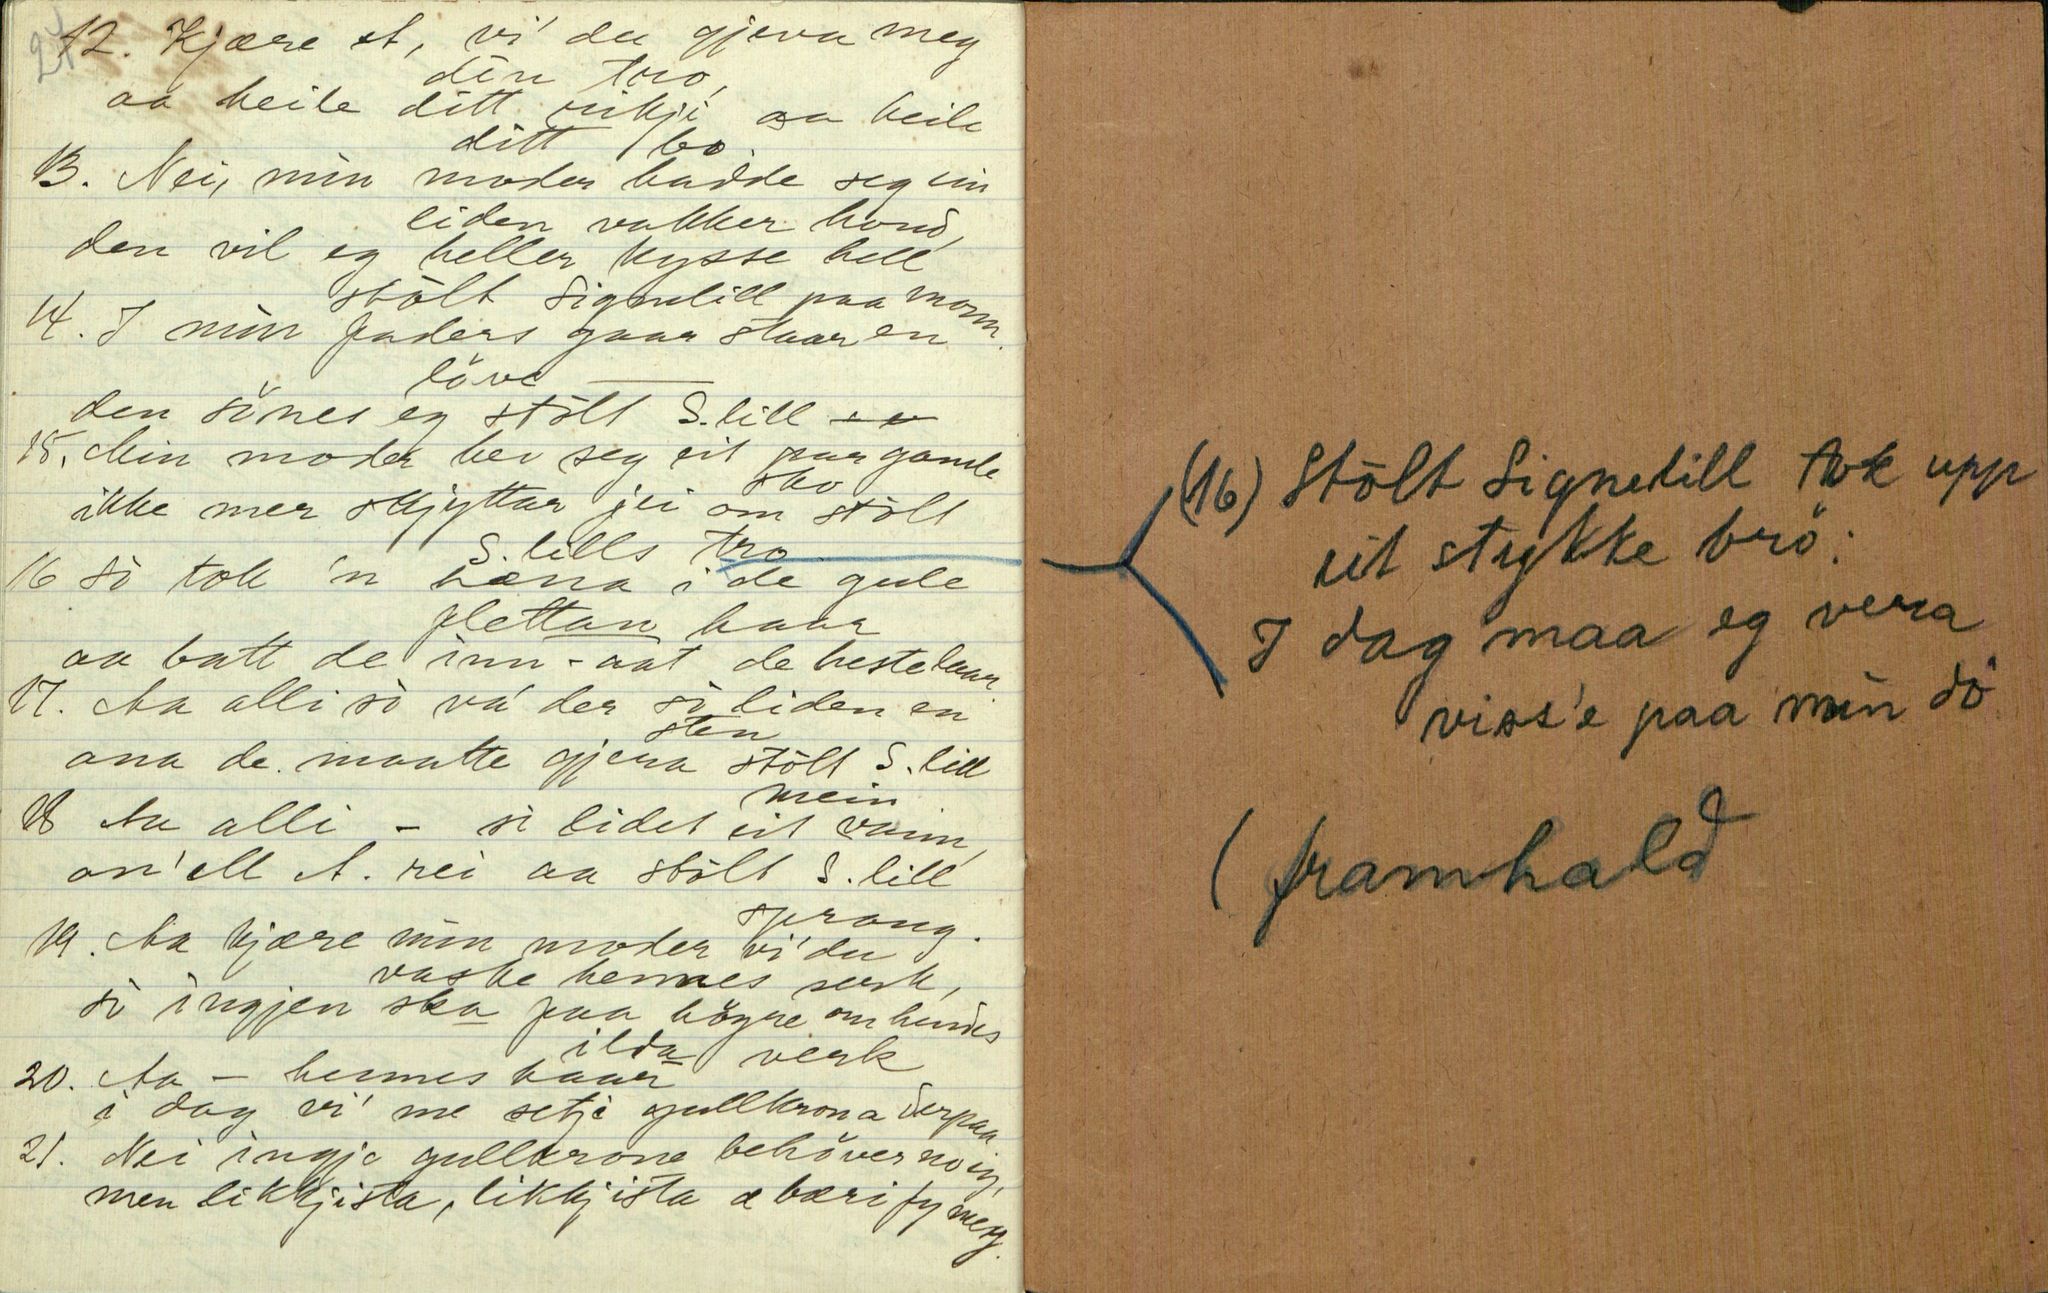 12. Kjære A, vi' du gjeva meg
din tro,
aa heile ditt rikji aa heile
ditt bo.
13. Nei, min moder hadde seg ein
liden vakker hond,
den vil eg heller kysse hell
stòlt Signelill paa monn.
14. I min faders gaar staar en
löve
den sönes eg stòlt S.lill
15. Min moder hev seg eit par gamle
sko
ikke mer skjyttar jei om stòlt
S. lills tro
16 Sò tok 'n hæna i de gule
flettan haar
aa batt de inn-aat de hestelaar
17. Aa alli sò va' der sò liden en
sten
ana de maatte gjera stòlt S. lill
mein
18 Aa alli – sò lidet eit vainn,
an'ell A. rei aa stòlt S. lill
sprang.
19. Aa kjære min moder vi' du
vaske hennes serk,
sò ingjen ska paa högre om hendes
ilda verk
20. Aa – hennes haar
i dag vi' me setji gullkrona derpaa
21. Nei ingje gullkrone behöver no eg,
men likkjista, likkjista æ bæri fy meg.
(16) Stòlt Signelill tok upp
eit stykke brö:
I dag maa eg vera
viss'e paa min dö
( framhald